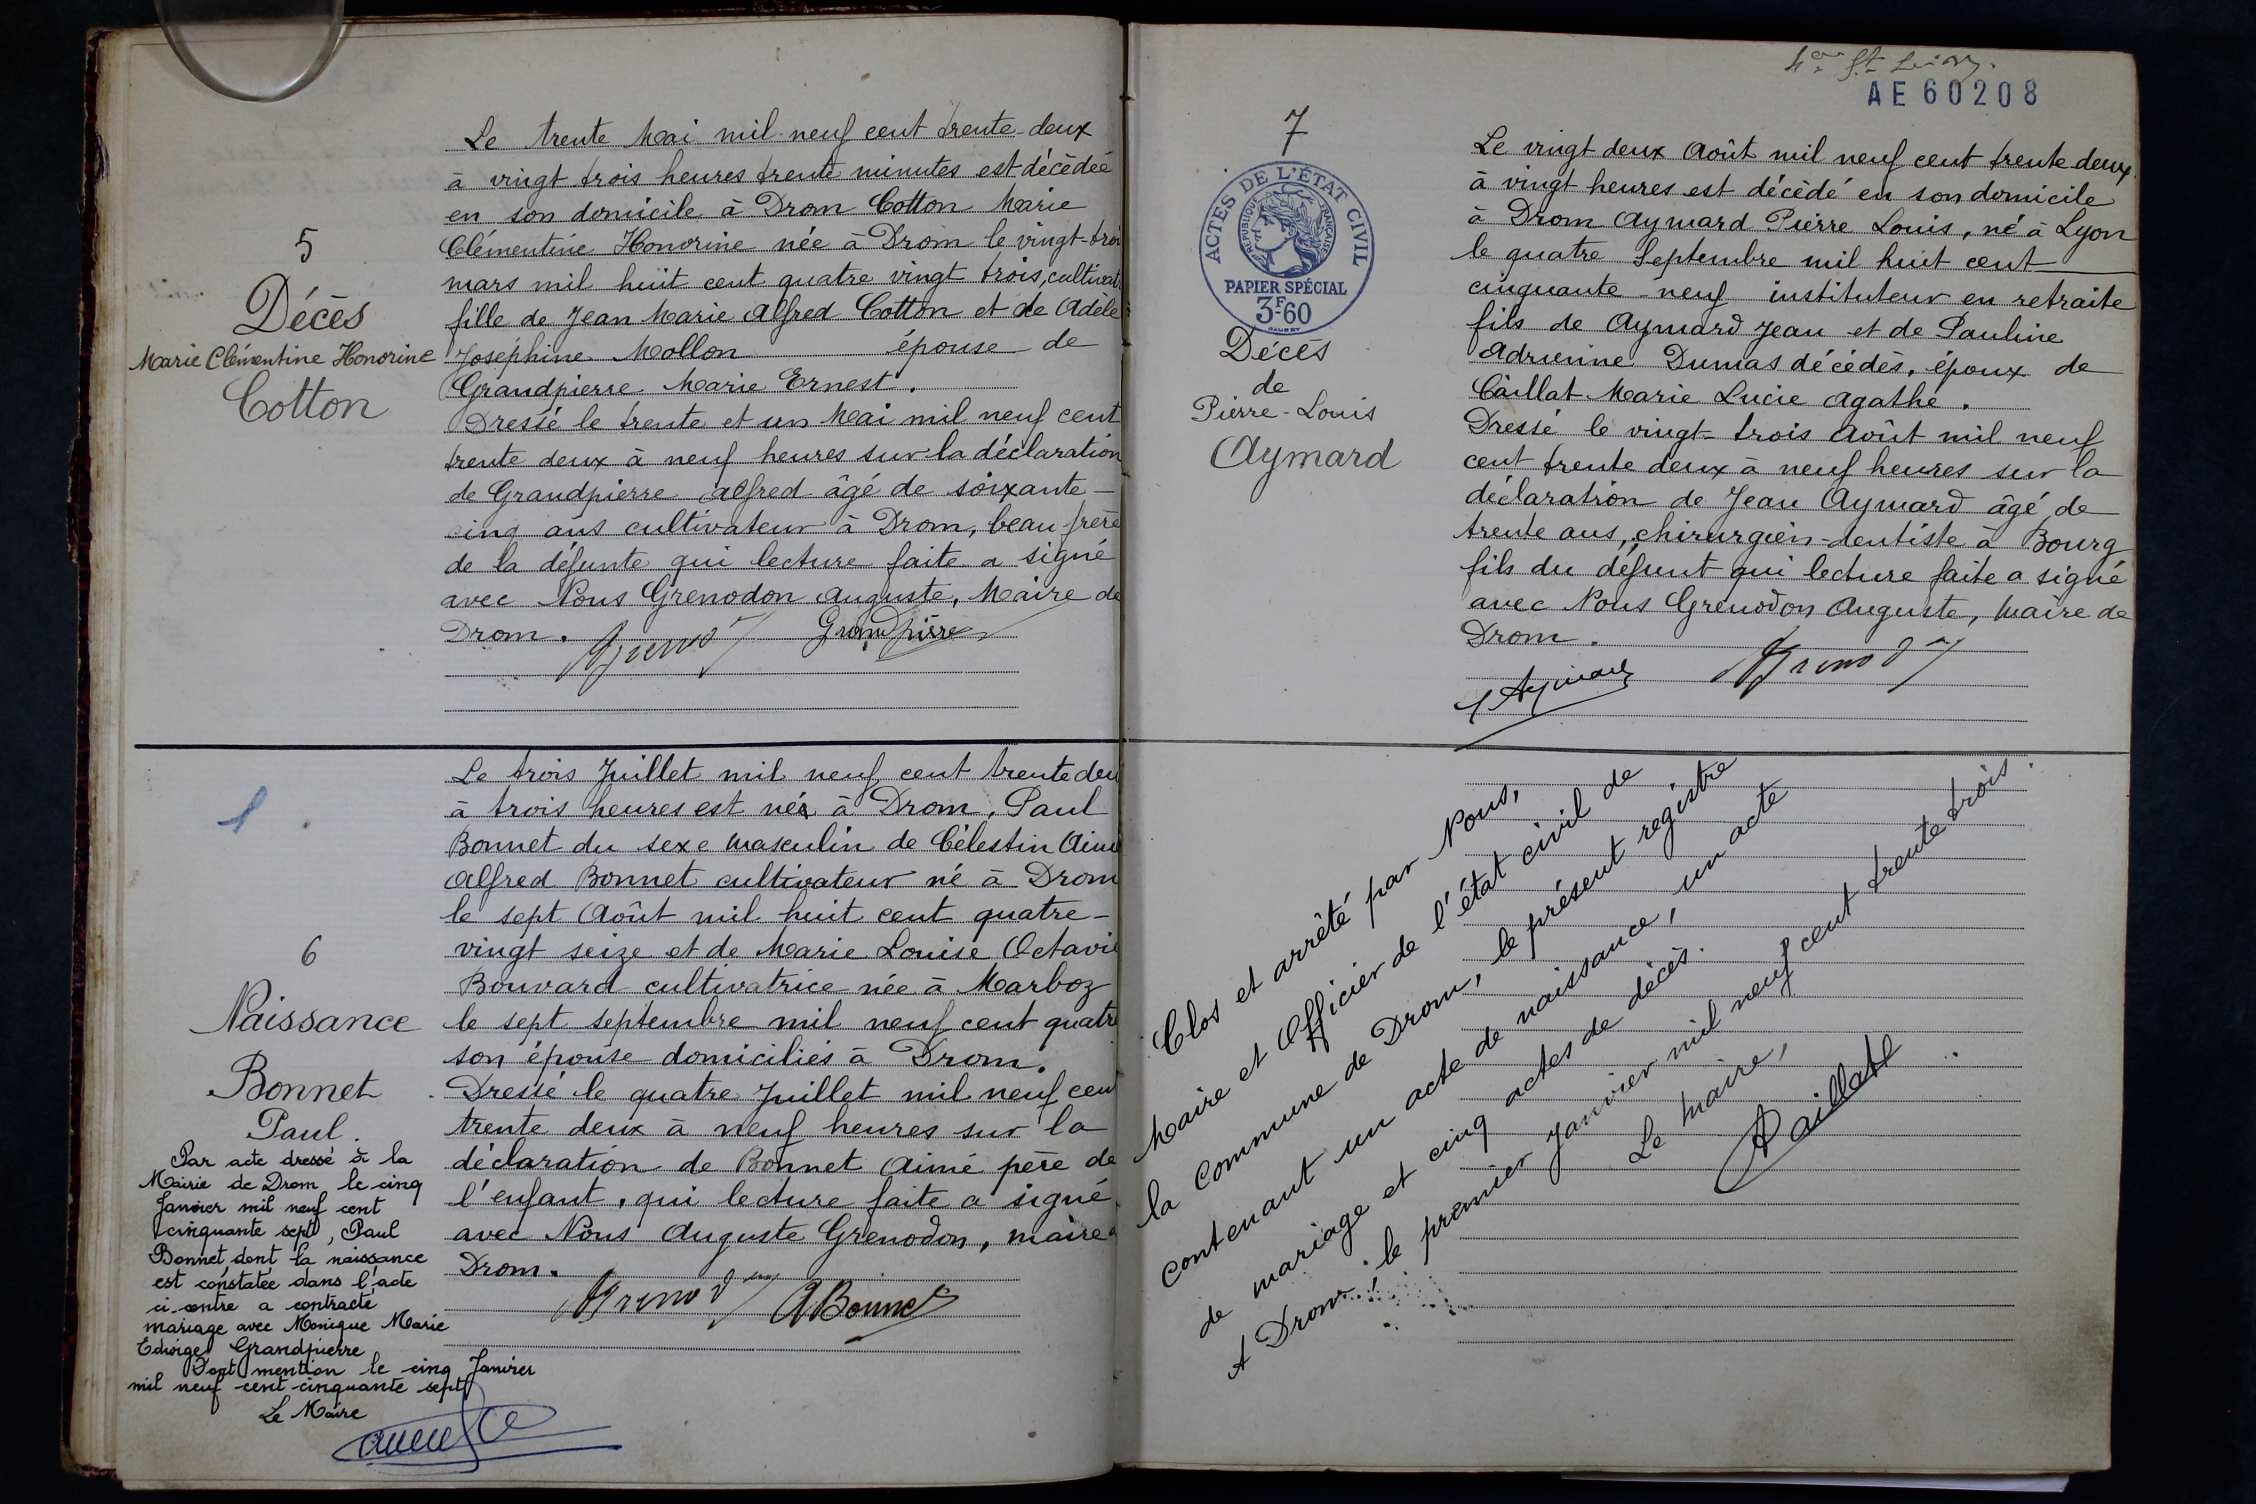 5
Décès
Marie Clémentine Honorine
Cotton
Le trente Mai mil neuf cent trente-deux
à vingt trois heures trente minutes est décèdée
en son domicile à Drom Cotton Marie
Clémentine Honorine née à Drom le vingt-troi
mars mil huit cent quatre vingt trois, cultivat
fille de Jean Marie Alfred Cotton et de Adèle
Joséphine Mollon épouse de
Grandpierre Marie Ernest.
Dressé le trente et un Mai mil neuf cent
trente deux à neuf heures sur la déclaration
de Grandpierre Alfred âgé de soixante-
cinq ans cultivateur à Drom, beau-frère
de la défunte qui lecture faite a signé
avec Nous Grenodon Auguste, Maire de
Drom.
Grandpierre
1
6
Naissance
Bonnet
Paul.
Par acte dressé à la
Mairie de Drom le cinq
Janvier mil neuf cent
cinquante sept, Paul
Bonnet, dont la naissance
est constatée dans l'acte
ci-contre a contracté
mariage avec Monique Marie
Edwige Grandpierre
Dont mention le cinq Janvier
mil neuf cent cinquante sept
Le Maire
Le trois Juillet mil neuf cent trente deu
à trois heures est né à Drom, Paul
Bonnet du sexe masculin de Célestin Aimé
Alfred Bonnet cultivateur né à Drom
le sept Août mil huit cent quatre-
vingt seize et de Marie Louise Octavie
Bouvard cultivatrice née à Marboz
le sept septembre mil neuf cent quatre
son épouse domiciliés à Drom.
Dressé le quatre Juillet mil neuf cen
trente deux à neuf heures sur la
déclaration de Bonnet Aimé père de
l'enfant, qui lecture faite a signé
avec Nous Auguste Grenodon, maire d
Drom.
ABonnet
AE 60208
7
ACTES DE L'ÉTAT CIVIL
RÉPUBLIQUE FRANÇAISE
PAPIER SPÉCIAL
3F60
Décès
de
Pierre-Louis
Aymard
Le vingt deux Août mil neuf cent trente deux
à vingt heures est décèdé en son domicile
à Drom Aymard Pierre Louis, né à Lyon
le quatre Septembre mil huit cent
cinquante-neuf instituteur en retraite
fils de Aymard Jean et de Pauline
Adrienne Dumas décédés, époux de
Caillat Marie Lucie Agathe.
Dressé le vingt-trois Août mil neuf
cent trente deux à neuf heures sur la
déclaration de Jean Aymard âgé de
trente ans, chirurgien-dentiste à Bourg
fils du défunt qui lecture faite a signé
avec Nous Grenodon Auguste, Maire de
Drom.
Aymard
Clos et arrêté par Nous,
Maire et Officier de l'état civil de
la commune de Drom, le présent registre
contenant un acte de naissance, un acte
de mariage et cinq actes de décès.
A Drom, le premier Janvier mil neuf cent trente trois.
Le Maire,